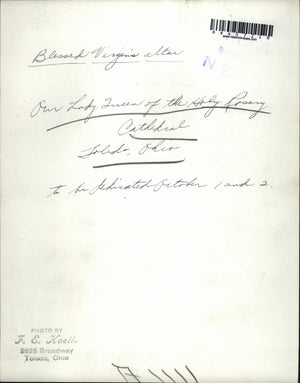 Blessed Virgins altar
Our Lady Queen of the Holy Rosary
Cathedral
Toledo, Ohio
to be dedicated October 1 and 2.
PHOTO BY
F. E.
2625 Broadway
Toledo, Ohio